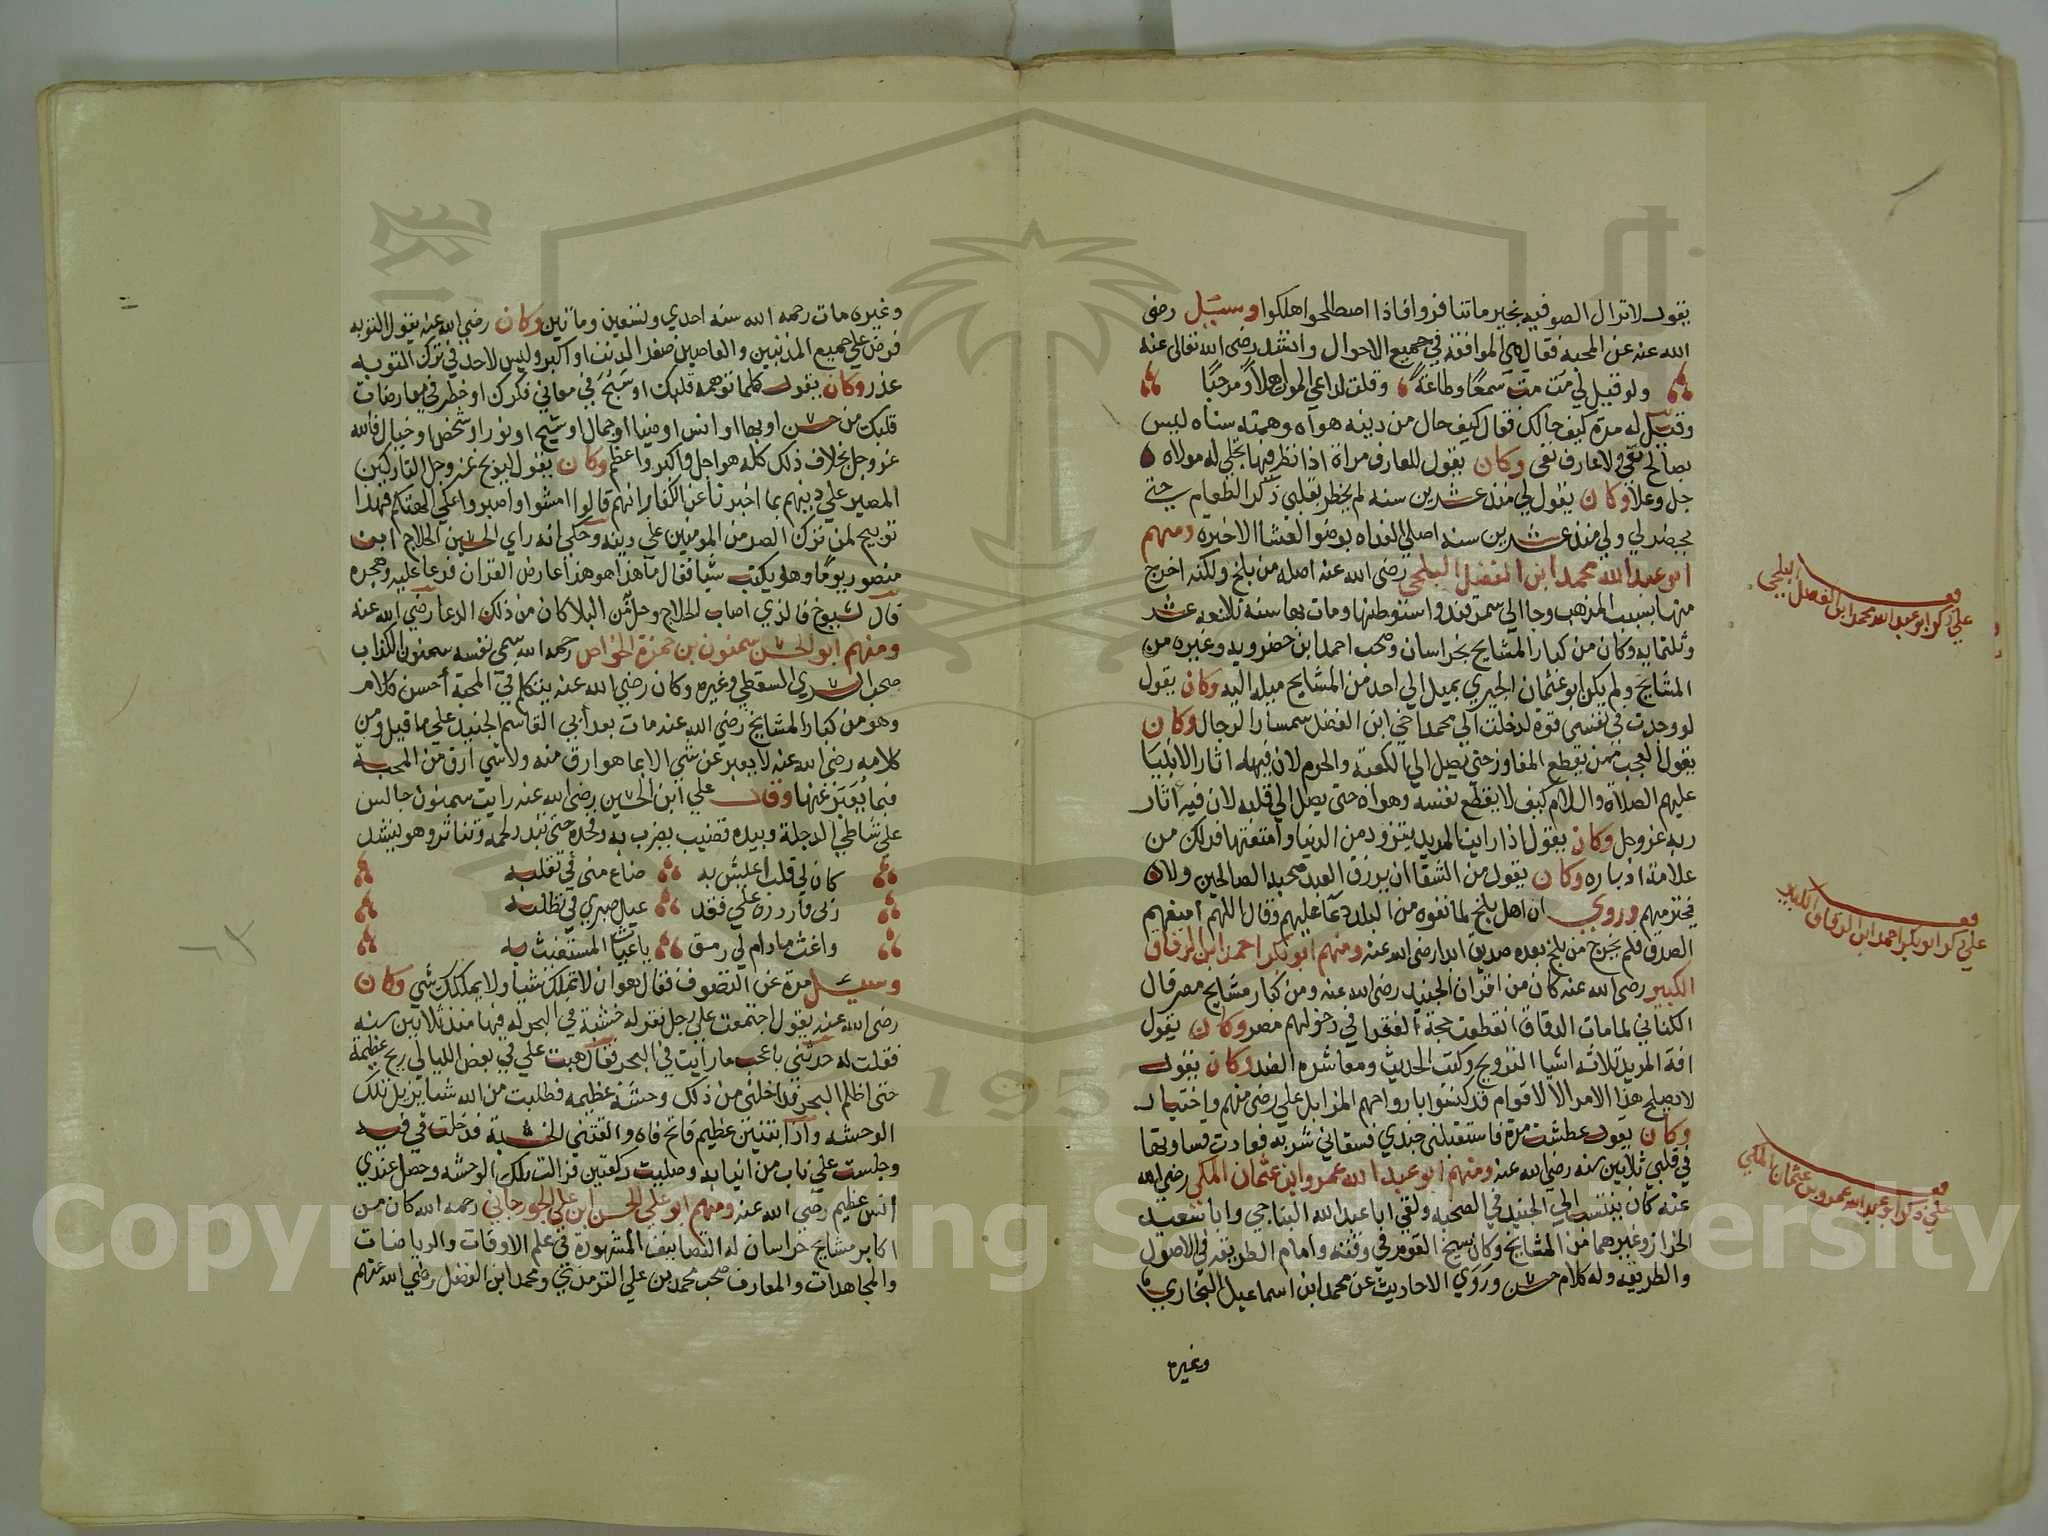 يقول لا تزال الصوفيه بخير ما تنافروا فاذا اصطلحوا هلكوا وسئل رضى
الله عنه عن المحبه فقال هي الموافقة في جميع الاحوال وانشد رضى الله تعالى عنه
ولو قيل لي مت مت سمعًا وطاعةً وقلت لداعي الموت اهلاً ومرحبًا
وقيل له مرة كيف حالك فقال كيف حال من دينه هواه وهمته سناه ليس
بصالح تقي ولا عارف نقي وكان يقول للعارف مراة اذا نظر فيها تجلي له مولاه
جل وعلا وكان يقول لي منذ عشرين سنه لم يخطر بقلبي ذكر الطعام حتى
يحضر لي ولي منذ عشرين سنه اصلي الغداه بوضو العشا الاخيرة ومنهم
ابو عبد الله محمد ابن الفضل البلخي رضي الله عنه اصله من بلخ ولكنه اخرج
منها بسبب المذهب وجا الي سمرقند واستوطنها ومات بها سنة تلاتة عشر
وثلثمايه وكان من كبار المشايخ بخراسان وصحب احمد ابن خضرويه وغيره من
المشايخ ولم يكن ابو عثمان الحيري يميل الي احد من المشايخ ميله اليه وكان يقول
لو وجدت في نفسي قوة لدخلت الي محمد اخي ابن الفضل سمسار الرجال وكان
يقول العجب ممن يقطع المفاوز حتي يصل الي الكعبة والحرم لان فيها اثار الانبيا
عليهم الصلاة والسلام كيف لا يقطع نفسه وهواه حتى يصل الي قلبه لان فيه اثار
ربه عز وجل وكان يقول اذا راينا المريد يتزود من الدنيا وامتعتها فذلك من
علامة ادباره وكان يقول من الشقا ان يرزق العبد صحبة الصالحين ولا
يحترمهم وروي ان اهل بلخ لما نفوه من البلد دعا عليهم وقال اللهم امنعهم
الصدق فلم يخرج من بلخ بعده صديق ابدا رضى الله عنه ومنهم ابو بكر احمد ابن الزقاق
الكبير رضى الله عنه كان من اقران الجنيد رضى الله عنه ومن كبار مشايخ مصر قال
الكتاني لما مات الدقاق انقطعت حجة الفقرا في دخولهم مصر وكان يقول
افة المريد تلاتة اشيا التزويج وكتب الحديث ومعاشرة الضد وكان يقول
لا يصلح هذا الامر الا لاقوام قد كنسوا بارواحهم المزابل علي رضى منهم واختيار
وكان يقول عطشت مرة فاستقبلنى جندي فسقاني شربه فعادت قساوتها
في قلبي ثلاثين سنه رضى الله عنه ومنهم ابو عبد الله عمرو ابن عثمان المكي رضي الله
عنه كان ينتسب الي الجنيد في الصحبه ولقي ابا عبد الله النباجي وابا سعيد
الخراز وغيرهما من المشايخ وكان شيخ القوم في وقته وامام الطريقه في الاصول
والطريقه وله كلام حسن وروي الاحاديث عن محمد ابن اسماعيل البخاري
وغيره
علي ذكر ابو عبد الله محمد ابن الفضل البلخي
علي ذكر ابو بكر احمد ابن الزقاق الكبير
علي ذكر ابو عبد الله عمرو بن عثمان المكي
وغيره مات رحمه الله سنه احدي وتسعين وماتين وكان رضي الله عنه يقول التوبه
فرض علي جميع المذنبين والعاصين صغر الذنب او اكبر وليس لاحد في ترك التوبه
عذر وكان يقول كلما توهمه قلبك او سَنَحَ في معاني فكرك او خطر في معارضات
قلبك من حسن او بها او انس او ضيا او جمال او شبح او نور او شخص او خيال فالله
عز وجل بخلاف ذلك كله هو اجل واكبر واعظم وكان يقول لتوبخ عز وجل التاركين
المصير علي دينهم بما اخبرنا عن الكفار انهم قالوا امشوا واصبروا علي الهتكم فهذا
توبيخ لمن ترك الصبر من المومنين علي دينه وحكي انه راي الحسين الحلاج ابن
منصور يومًا وهو يكتب شيا فقال ما هذا هو هذا اعارض القران فدعا عليه وهجره
قال شيوخ فالذي اصاب الحلاج وحل من البلا كان من ذلك الدعا رضي الله عنه
ومنهم ابو الحسن سمنون بن حمزة الخواص رحمه الله سمى نفسه سمنون الكذاب
صحب السري السقطي وغيره وكان رضي الله عنه يتكلم في المحبة أحسن كلام
وهو من كبار المشايخ رضي الله عنه مات بعد أبي القاسم الجنيد علي ما قيل ومن
كلامه رضى الله عنه لا يعبر عن شي الا بما هو ارق منه ولا شي ارق من المحبة
فبما يُعَبَر عنها وقال علي ابن الحسين رضي الله عنه رايت سمنون جالس
علي شاطئ الدجلة وبيده قضيب يضرب به فخده حتى تبدد لحمه وتناثر وهو ينشد
كان لي قلب اعيش به ضاع منى في تقلبه
رب فاردده علي فقد عيل صبري في تطلبه
واغث مادام لي رمق يا غياث المستغيث به
وسئل مرة عن التصوف فقال هو ان لا تملك شيأ ولا يملكك شي وكان
رضى الله عنه يقول اجتمعت علي رجل له خشبة في البحر له فيها منذ ثلاثين سنه
فقلت له حدثني باعجب ما رأيت في البحر فقال هبت علي في بعض الليالي ريح عظيمة
حتى اظلم البحر فداخلني من ذلك وحشة عظيمه فطلبت من الله شيا يزيل تلك
الوحشه واذا بتنين عظيم فاتح فاه والقتني الخشبة فدخلت في فيه
وجلست علي ناب من انيابه وصليت ركعتين فزالت تلك الوحشه وحصل عندي
انس عظيم رضي الله عنه ومنهم ابو علي الحسن ابن علي الجورجاني رحمه الله كان من
اكابر مشايخ خراسان له التصانيف المشهورة في علم الاوقات والرياضات
والمجاهدات والمعارف صحب محمد بن علي الترمذي ومحمد ابن الفضل رضي الله عنهم
1957
Copyright © King Saud University